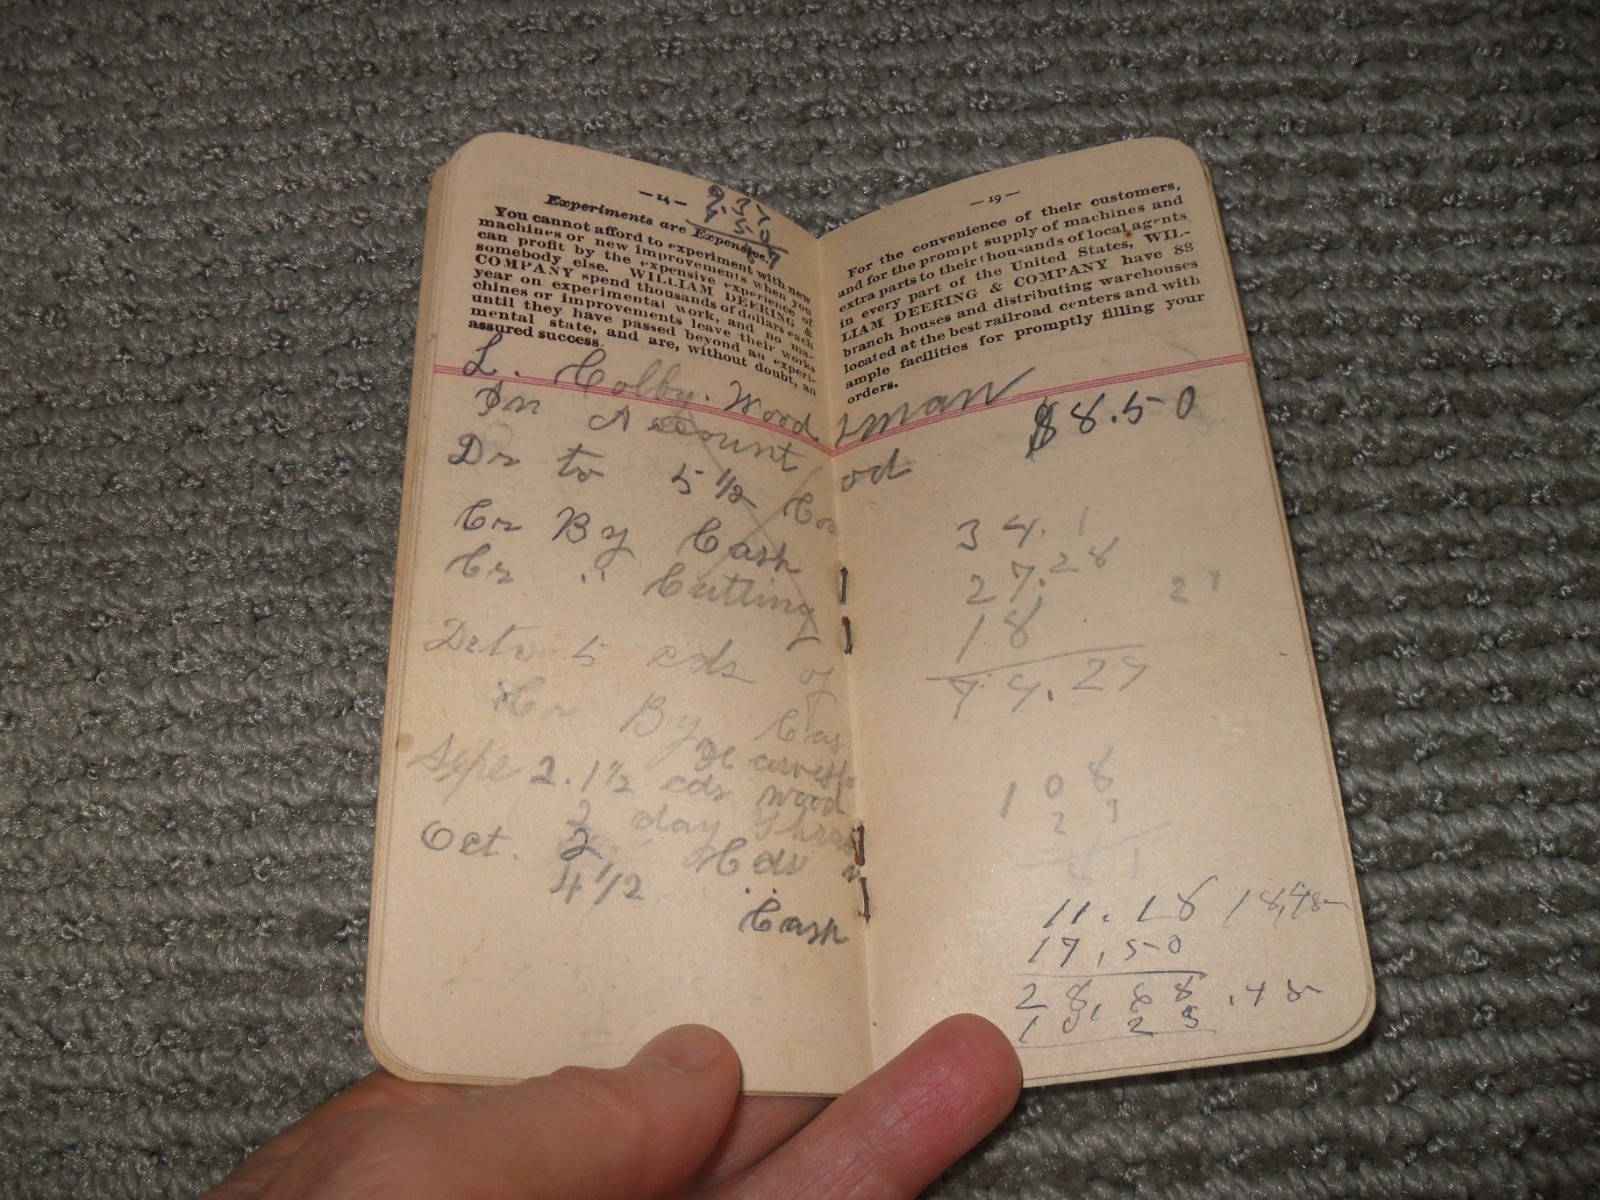 — 14 —
Experiments are Expensive.
You cannot afford to experiment with new
machines or new improvements when you
can profit by the expensive experience of
somebody else. WILLIAM DEERING &
COMPANY spend thousands of dollars each
year on experimental work, and no ma-
chines or improvements leave their works
until they have passed beyond an experi-
mental state, and are, without doubt, an
assured success.
L. Colby. Wood
In Account
Dr to 5 1/2 Co
Cr By Cash
Cr " Cutting
Dr to 5 cds of
Cr By Cas
Sept 2. 1 1/2 cds wood
2 day Thras
Oct. 2 Cds
4 1/2 "
Cash
— 19 —
For the convenience of their customers,
and for the prompt supply of machines and
extra parts to their thousands of local agents
in every part of the United States, WIL-
LIAM DEERING & COMPANY have 83
branch houses and distributing warehouses
located at the best railroad centers and with
ample facilities for promptly filling your
orders.
man
$8.50
od
34.1
27.28
18
27
108
27
11.18
17,50
28,68